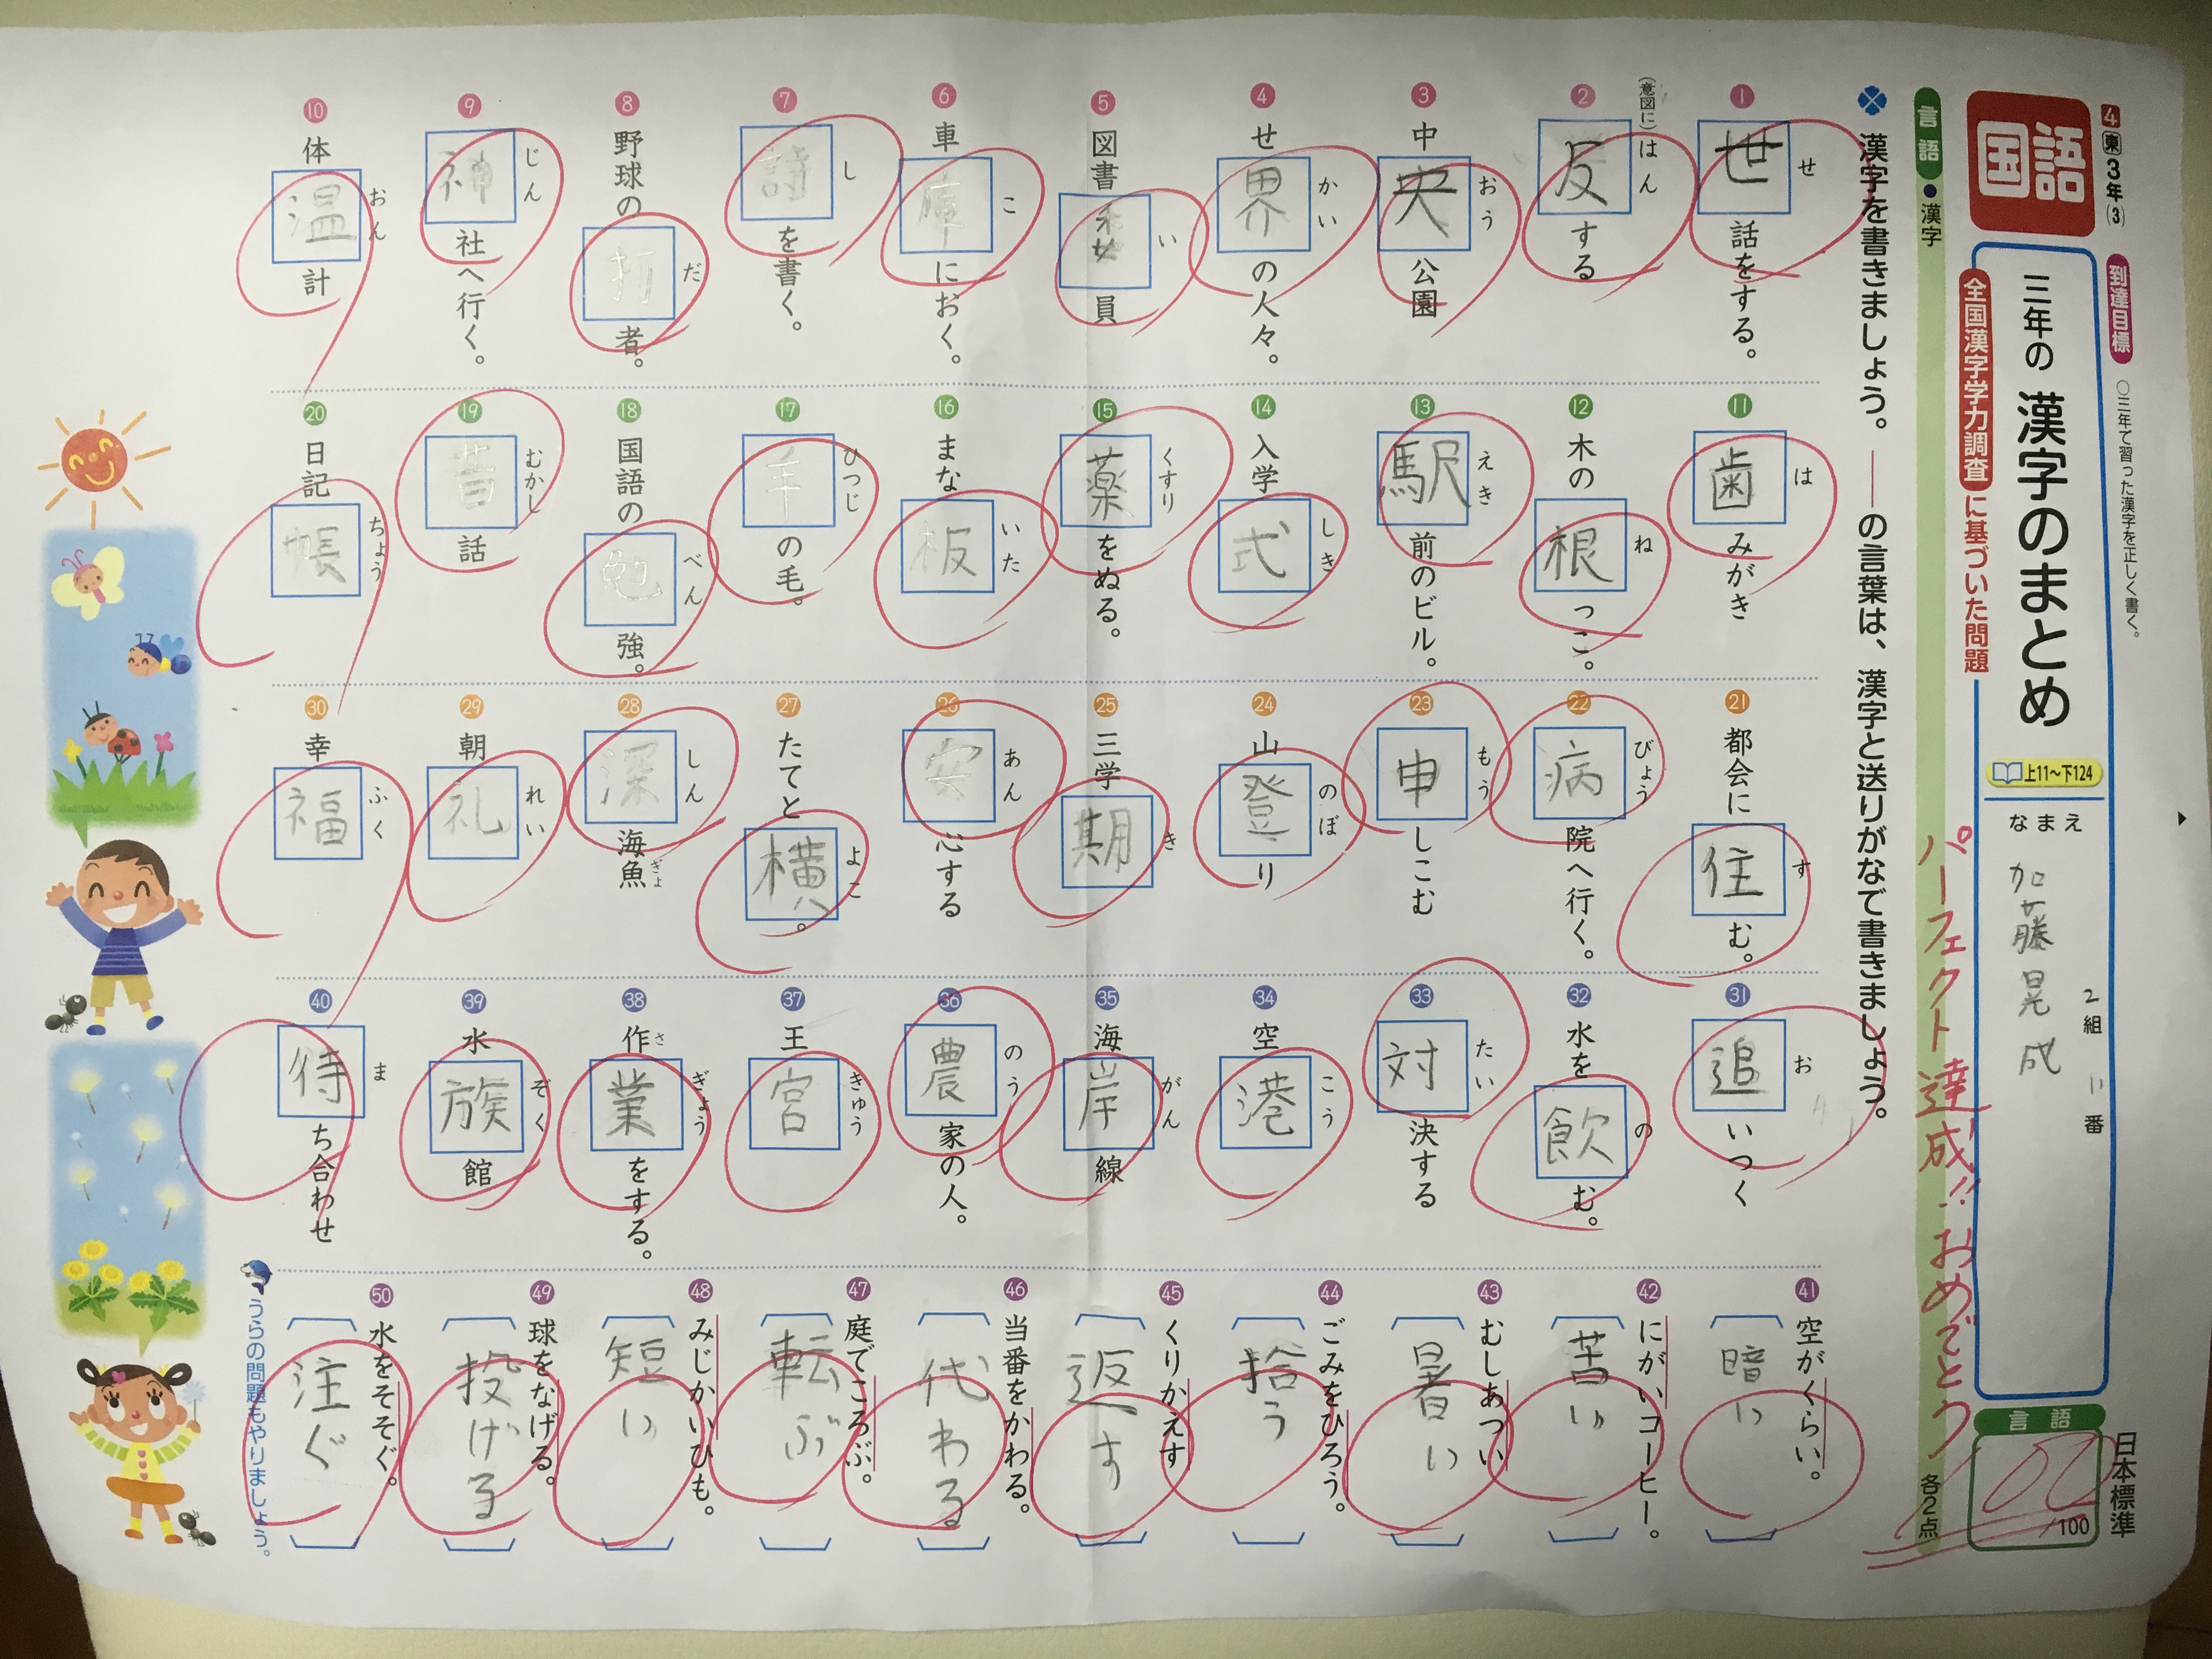 4 東 3年(3)
国語
到達目標
○三年で習った漢字を正しく書く。
三年の 漢字のまとめ
全国漢字学力調査に基づいた問題
上11〜下124
なまえ
2組 11番
加藤晃成
日本標準
言語
100
/100
言語●漢字
各2点
パーフェクト達成!!おめでとう
漢字を書きましょう。――の言葉は、漢字と送りがなで書きましょう。
1 世話をする。 せ
2 (意図に) 反する はん
3 中央公園 おう
4 せ界の人々。 かい
5 図書委員 い
6 車庫におく。 こ
7 詩を書く。 し
8 野球の打者。 だ
9 神社へ行く。 じん
10 体温計 おん
11 歯みがき は
12 木の根っこ。 ね
13 駅前のビル。 えき
14 入学式 しき
15 薬をぬる。 くすり
16 まな板 いた
17 羊の毛。 ひつじ
18 国語の勉強。 べん
19 昔話 むかし
20 日記帳 ちょう
21 都会に住む。 す
22 病院へ行く。 びょう
23 申しこむ もう
24 山登り のぼ
25 三学期 き
26 安心する あん
27 たてと横。 よこ
28 深海魚 しん ぎょ
29 朝礼 れい
30 幸福 ふく
31 追いつく お
32 水を飲む。 の
33 対決する たい
34 空港 こう
35 海岸線 がん
36 農家の人。 のう
37 王宮 きゅう
38 作業をする。 さ ぎょう
39 水族館 ぞく
40 待ち合わせ ま
41 空がくらい。 暗い
42 にがいコーヒー。 苦い
43 むしあつい 暑い
44 ごみをひろう。 拾う
45 くりかえす 返す
46 当番をかわる。 代わる
47 庭でころぶ。 転ぶ
48 みじかいひも。 短い
49 球をなげる。 投げる
50 水をそそぐ。 注ぐ
うらの問題もやりましょう。